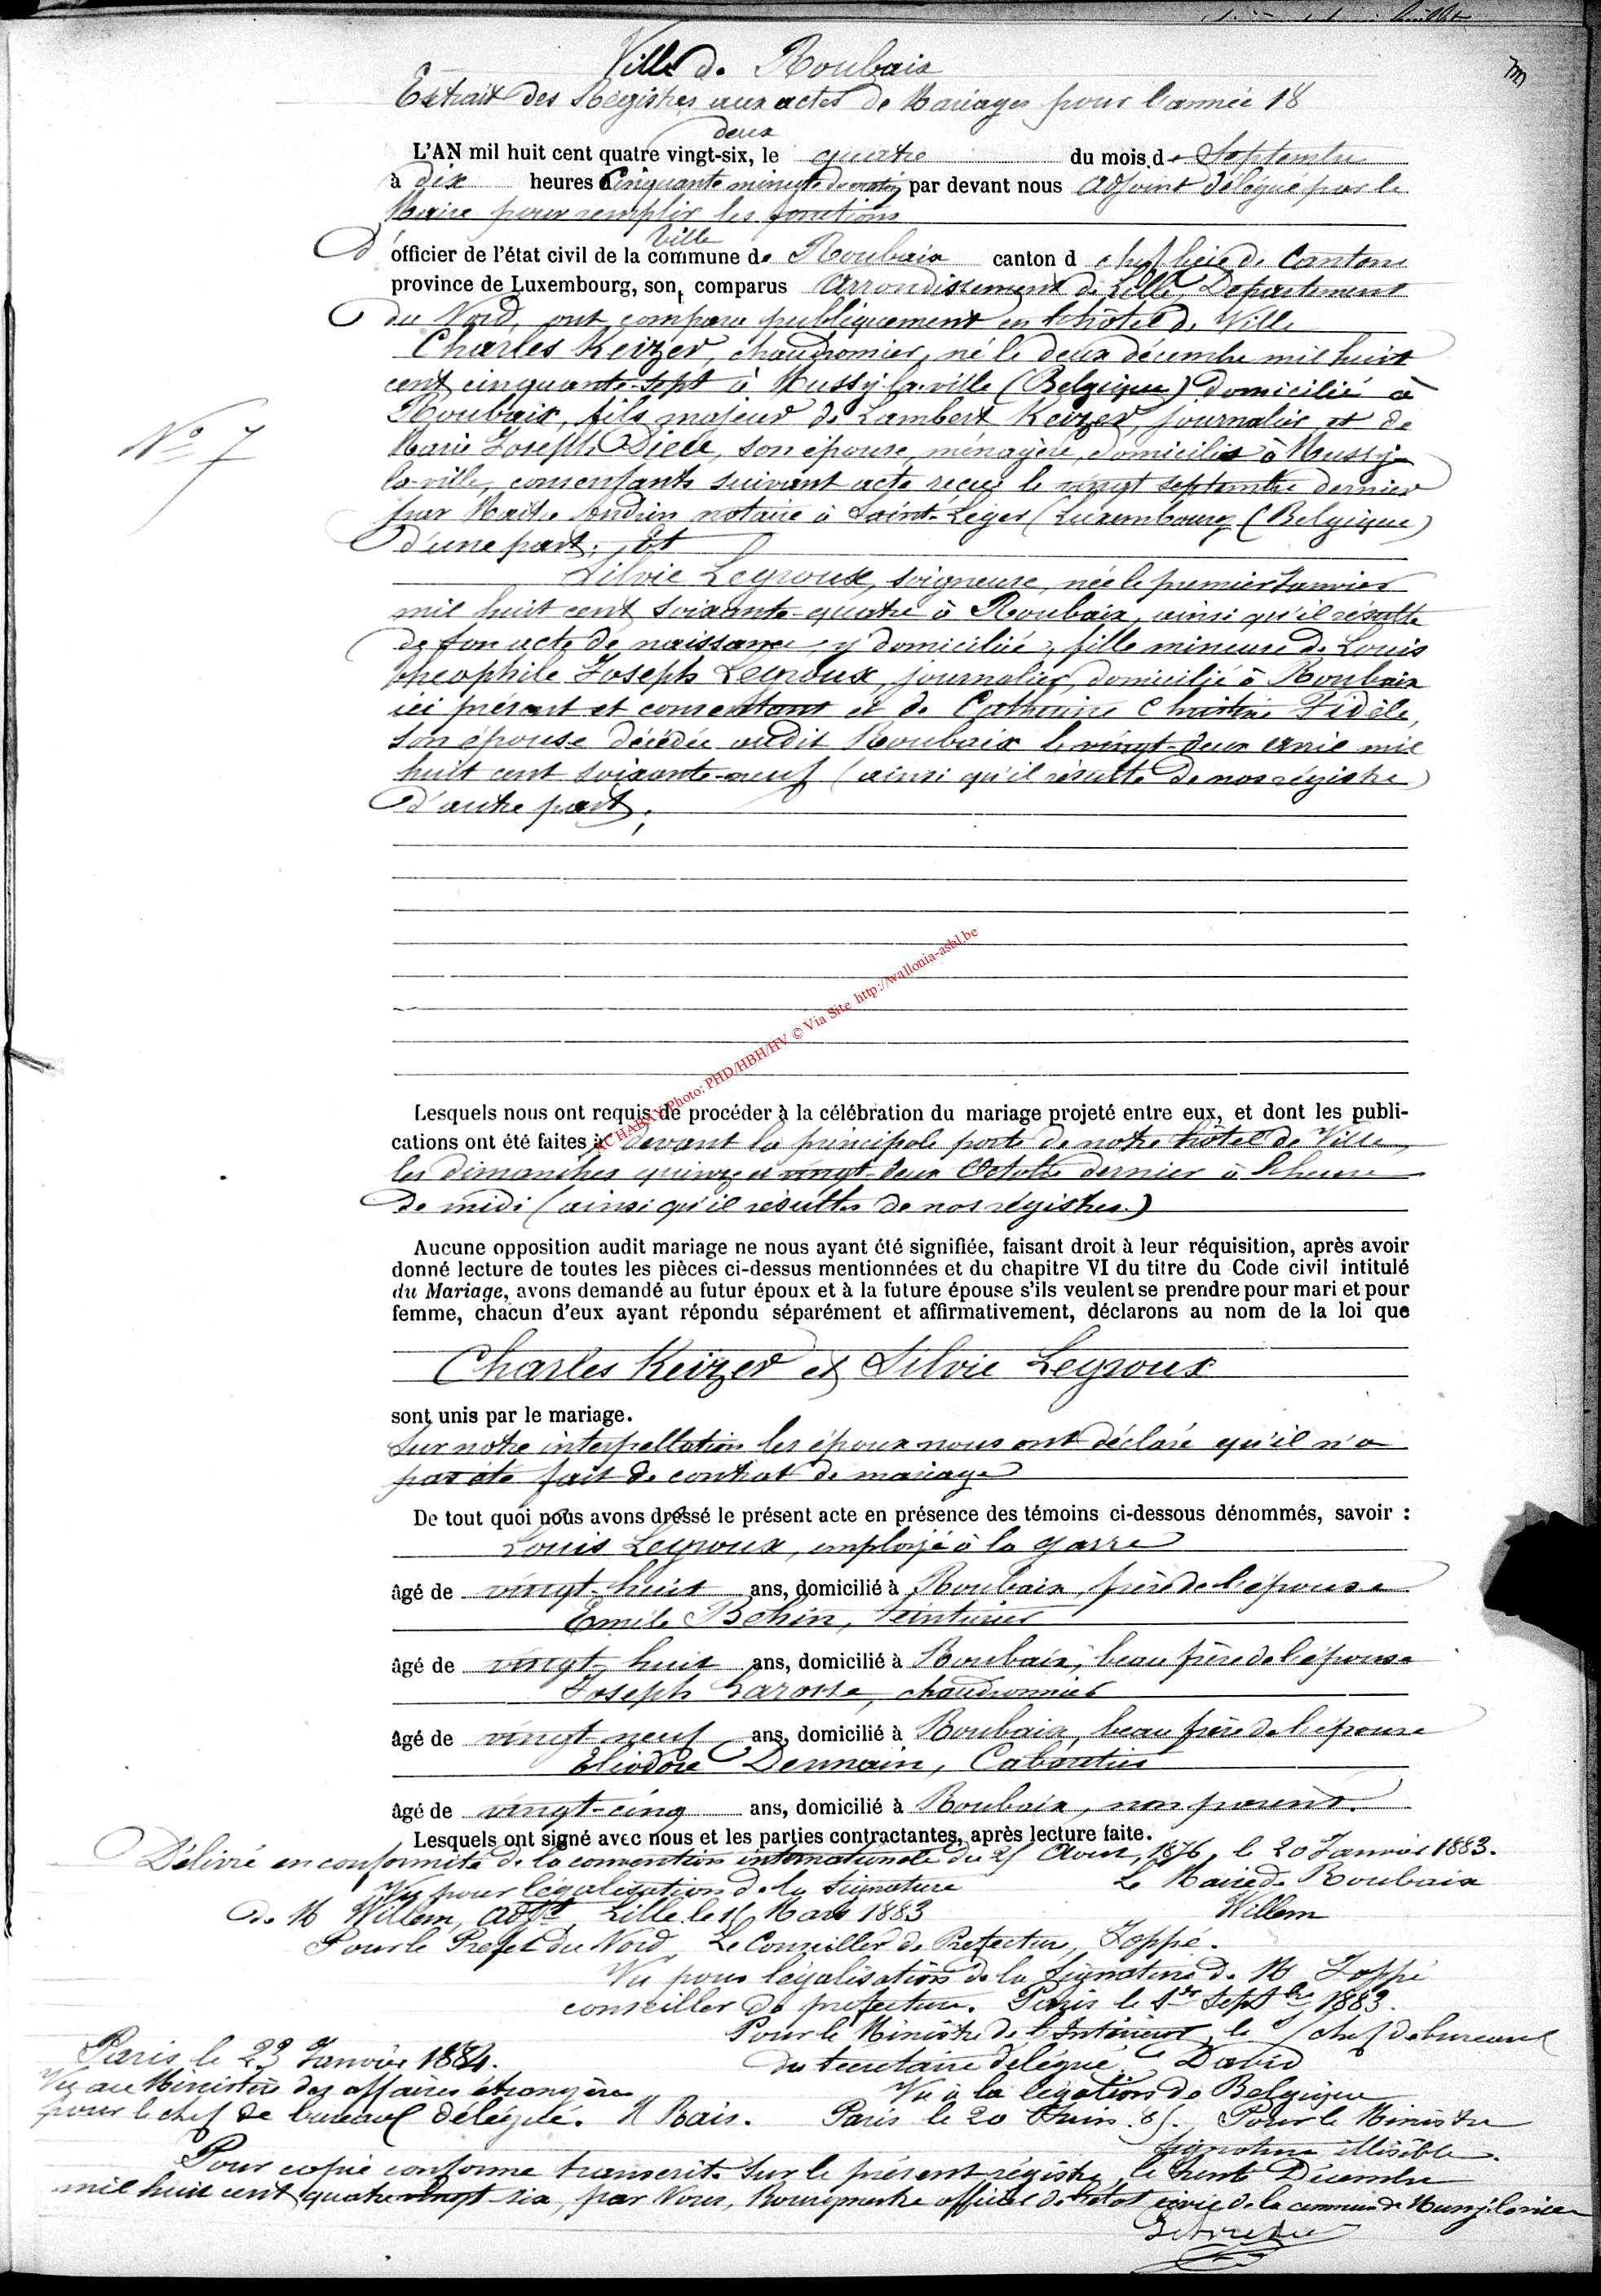 Ville de Roubaix
m
Extrait des Régistres aux actes de Mariages pour l'année 18
deux
L'AN mil huit cent quatre vingt-six, le quatre du mois de Septembre
à dix heures Cinquante minute du matin, par devant nous adjoint délégué par le
Maire pour remplir les fonctions
ville
d'officier de l'état civil de la commune de Roubaix canton d chef lieu de Canton
province de Luxembourg, son comparus Arrondissement de Lille, Departement
du Nord, ont comparu publiquement en l'hôtel de Ville
Charles Keizer, chaudronnier, né le deux décembre mil huit
cent cinquante-sept à Mussy-la-ville (Belgique) domicilié à
Roubaix, fils majeur de Lambert Keizer, journalier, et de
N° 7
Marie Joseph, son épouse, ménagère, domiciliés à Mussy-
la-ville, consentants suivant acte reçu le vingt septembre dernier
par Maître notaire à Saint-Léger (Luxembourg (Belgique)
d'une part; Et
Silvie Legroux, soigneuse, née le premier Janvier
mil huit cent soixante-quatre à Roubaix, ainsi qu'il résulte
de son acte de naissance, y domiciliée, fille mineure de Louis
Théophile Joseph Legroux, journalier, domicilié à Roubaix
ici présent et consentant et de Catherine Christine Fidèle,
son épouse décédée audit Roubaix le vingt-deux avril mil
huit cent soixante-neuf (ainsi qu'il résulte de nos régistre)
d'autre part;
ACHABAY Photo: PHD/HBH/HV © Via Site http://wallonia-asbl.be
Lesquels nous ont requis de procéder à la célébration du mariage projeté entre eux, et dont les publi-
cations ont été faites à devant la principale porte de notre hôtel de Ville,
les dimanches quinze et vingt-deux Octobre dernier à l'heure
de midi (ainsi qu'il résulte de nos régistres)
Aucune opposition audit mariage ne nous ayant été signifiée, faisant droit à leur réquisition, après avoir
donné lecture de toutes les pièces ci-dessus mentionnées et du chapitre VI du titre du Code civil intitulé
du Mariage, avons demandé au futur époux et à la future épouse s'ils veulent se prendre pour mari et pour
femme, chacun d'eux ayant répondu séparément et affirmativement, déclarons au nom de la loi que
Charles Keizer et Silvie Legroux
sont unis par le mariage.
Sur notre interpellation les époux nous ont déclaré qu'il n'a
pas été fait de contrat de mariage
De tout quoi nous avons dressé le présent acte en présence des témoins ci-dessous dénommés, savoir :
Louis Legroux, employé à la garre
âgé de vingt-huit ans, domicilié à Roubaix, frère de l'épouse
Emile Behin, teinturier
âgé de vingt-huit ans, domicilié à Roubaix, beau frère de l'épouse
Joseph Larosse, chaudronnier
âgé de vingt neuf ans, domicilié à Roubaix, beau frère de l'épouse
Eliodore Dennain, Cabaretier
âgé de vingt-cinq ans, domicilié à Roubaix, non parent.
Lesquels ont signé avec nous et les parties contractantes, après lecture faite.
Délivré en conformité de la convention internationale du 25 Aout, 1876, le 20 Janvier 1883.
Vu pour légalisation de la signature Le Maire de Roubaix
de M Willem, adjt Lille le 15 Mars 1883 Willem
Pour le Préfet du Nord, Le Conseiller de Préfecture, Joppé.
Vu pour légalisation de la signature de M Joppé
conseiller de préfecture. Paris le 1er Septbre 1883.
Pour le Ministre de l'Intérieur, le s/chef de bureau
Paris le 23 Janvier 1884. du secrétaire délégué David
Vu au Ministère des affaires étrangères Vu à la légation de Belgique
pour le chef de bureau délégué. Paris le 20 Juin 85. Pour le Ministre
Signature illisible.
Pour copie conforme transcrite sur le présent régistre, le trente Décembre
mil huit cent quatre vingt six, par Nous, Bourgmestre officier de l'état civil de la commune de Mussy-la-ville